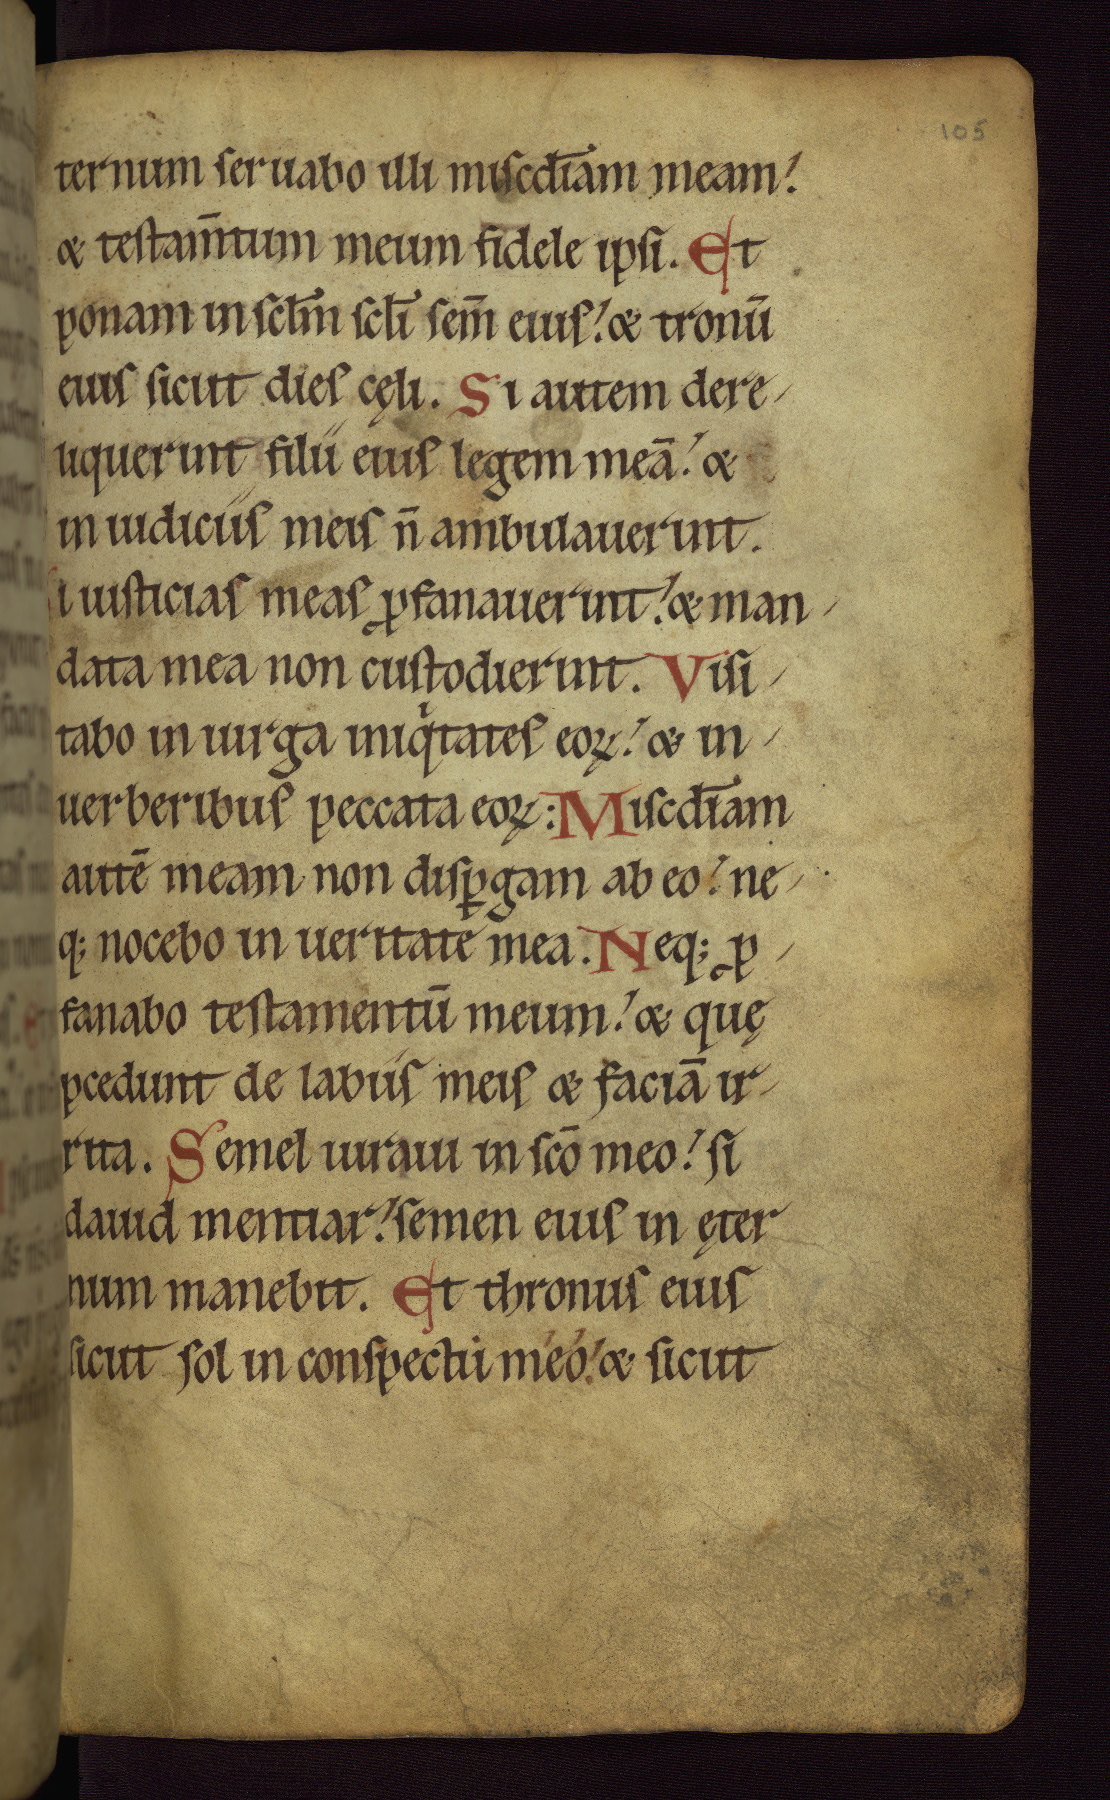 105
ternum seruabo illi miscd̄iam meam!
& testam̄tum meum fidele ipsi. Et
ponam in scl̄m scl̄i sem̄ eius! & tronū
eius sicut dies cęli. Si autem dere
liquerint filii eius legem meā! &
in iudiciis meis n̄ ambulauerint.
Si iusticias meas ꝓfanauerint! & man
data mea non custodierint. Visi
tabo in uirga iniqͥtates eoꝝ! & in
uerberibus peccata eoꝝ: Miscd̄iam
autē meam non disꝑgam ab eo! ne
q; nocebo in ueritate mea. Neq; ꝓ
fanabo testamentū meum! & quę
ꝓcedunt de labiis meis & faciā ir
rita. Semel iuraui in scō meo! si
dauid mentiar! semen eius in ęter
num manebit. Et thronus eius
sicut sol in conspectu meo! & sicut